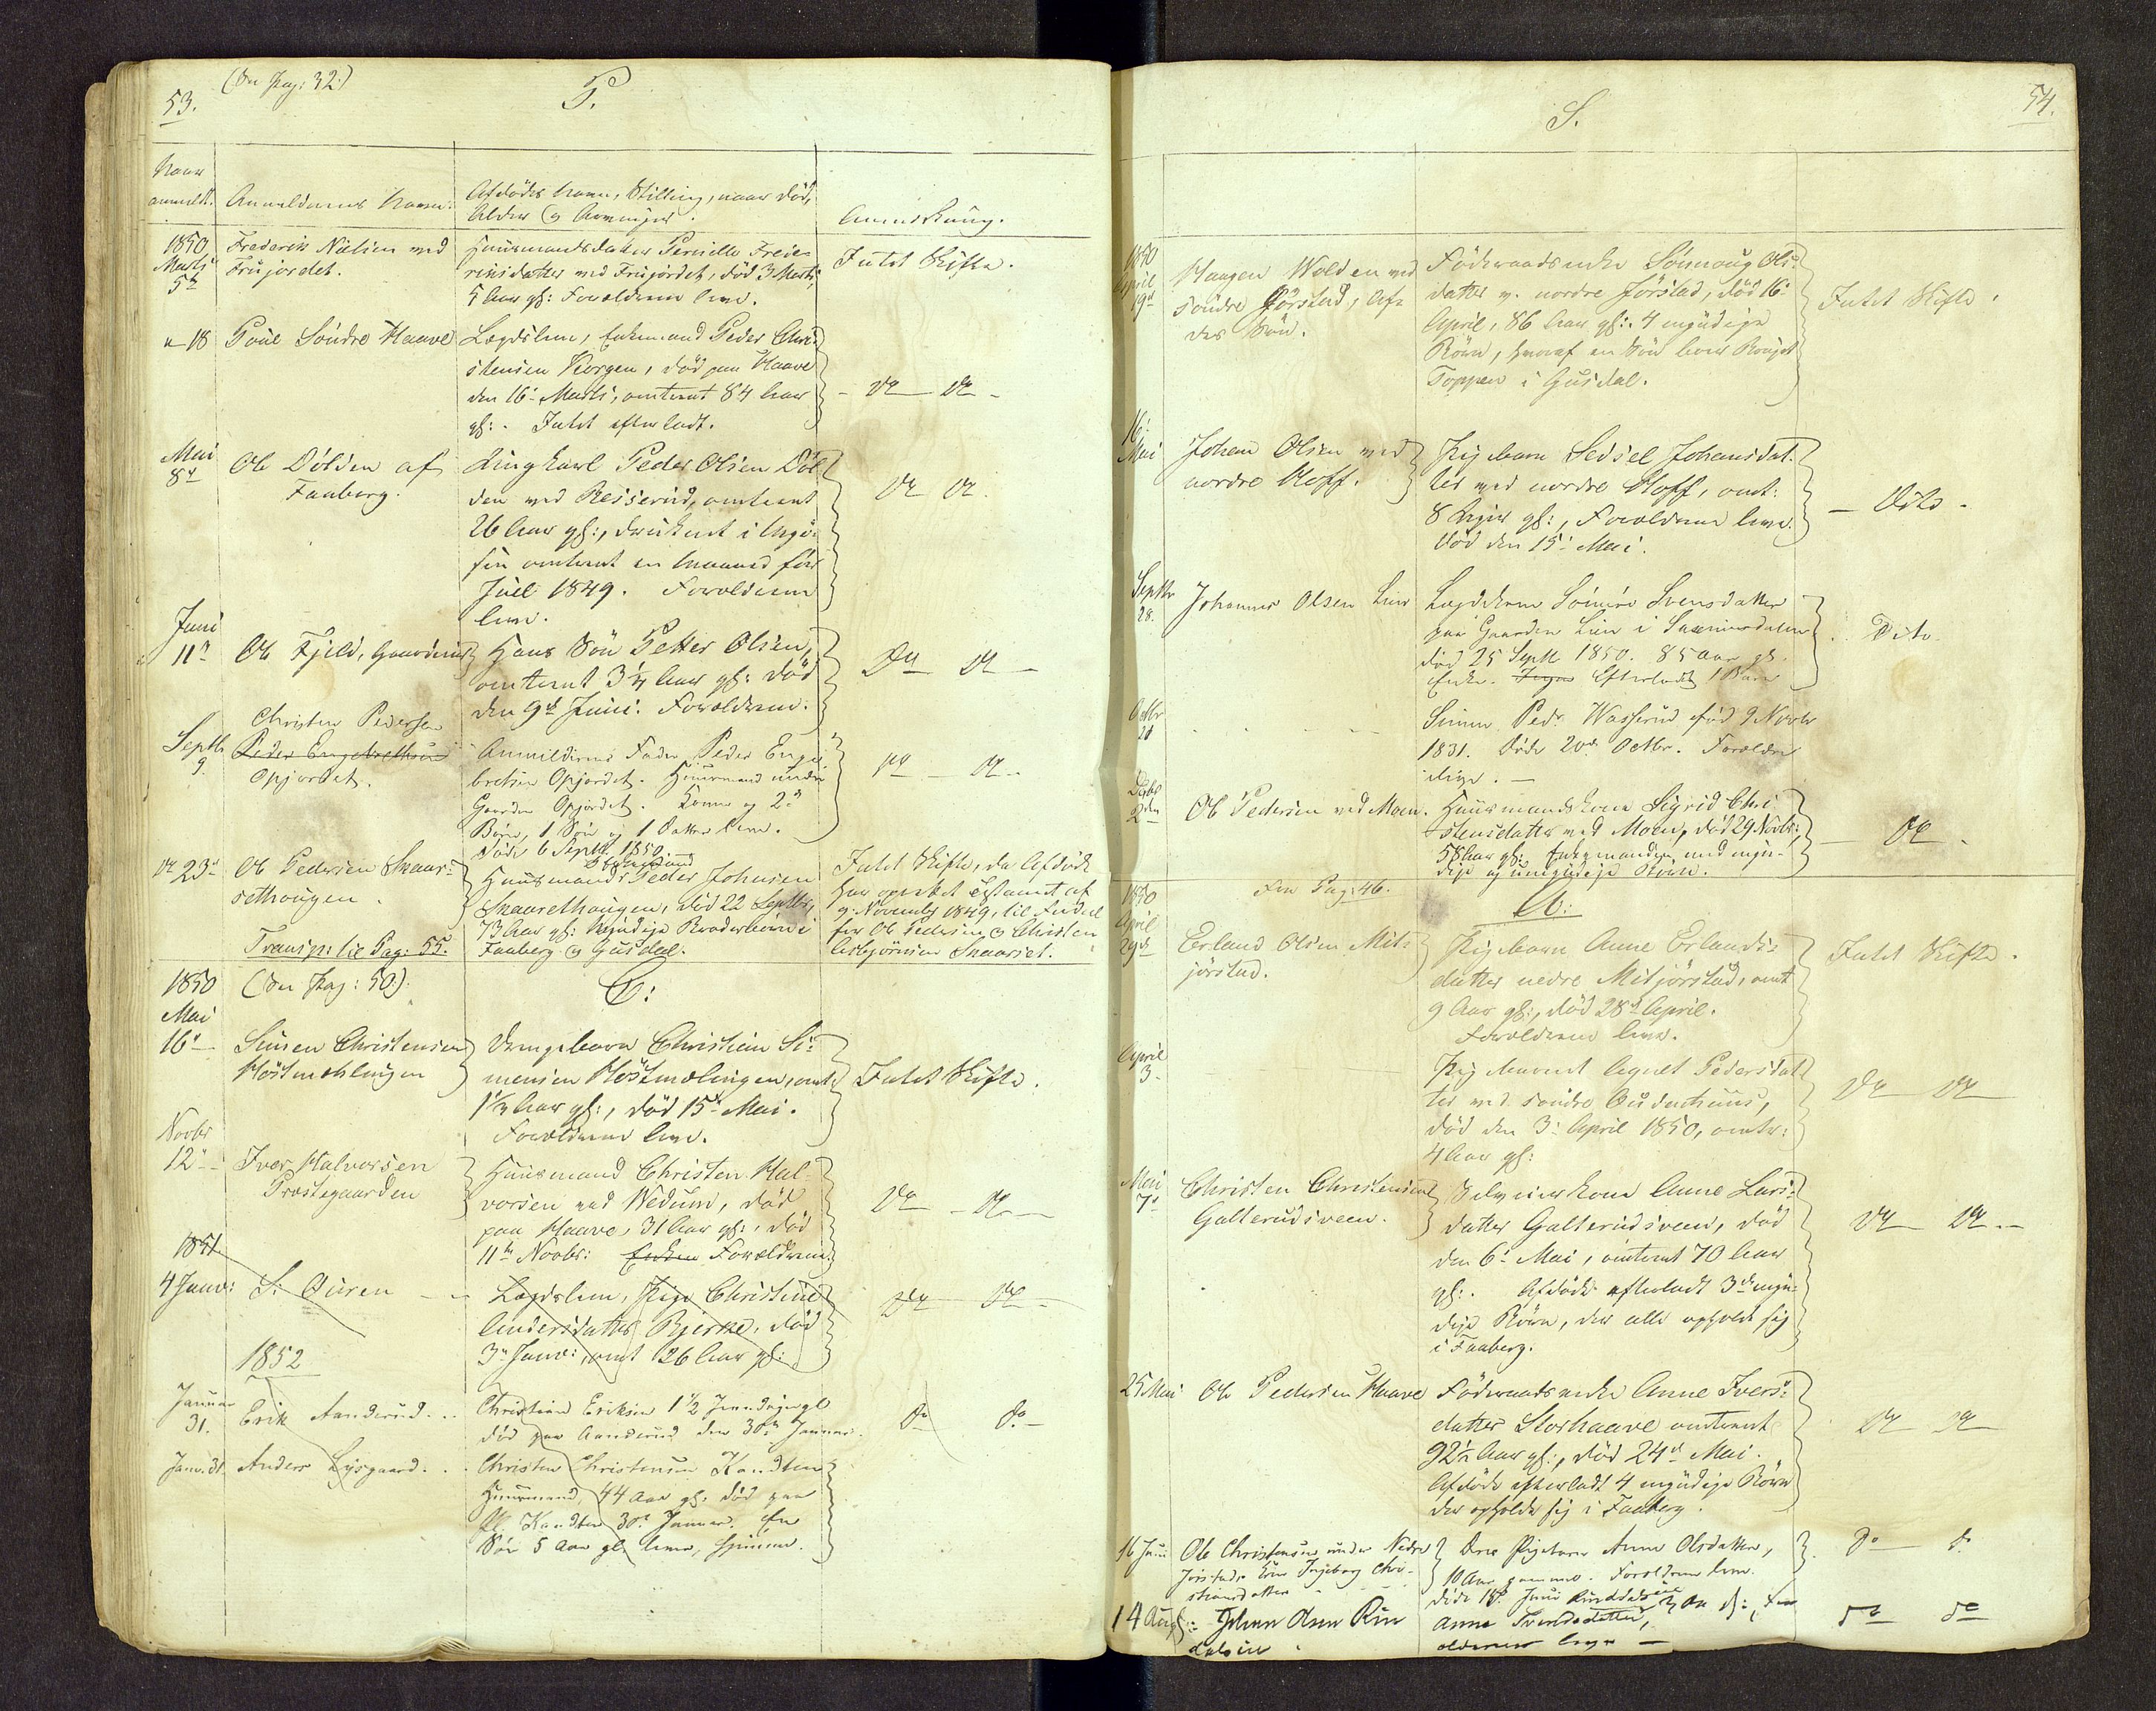 53.
(Fra Pag: 32.)
P.
Naar
anmeldt.
Anmelderens Navn.
Afdødes Navn, Stilling, naar død,
Alder og Arvinger.
Anmerkning.
1850
Marts
5te
Frederik Nielsen ved
Friisjordet.
Huusmandsdatter Pernille Frede-
riksdatter ved Friisjordet, død 3 Marts,
5 Aar gl: Forældrene leve.
Intet Skifte.
" 18
Poul Søndre Haave
Lægdslem, Enkemand Peder Chri-
stensen Korgen, død paa Haave
den 16de Marts, omtrent 84 Aar
gl:. Intet efterladt.
- Do Do -
Mai
8de
Ole Dölden af
Faaberg.
Ungkarl Peder Olsen Döl-
den ved Reisserud, omtrent
26 Aar gl:, druknet i
omtrent en Maaned før
Juul 1849. Forældrene
leve.
Do Do
Juni
11te
Ole Fjeld, Gaardmd
Hans Søn Petter Olsen,
omtrent 3¼ Aar gl: død
den 9de Juni. Forældrene.
Do Do -
Septb
9.
Christen Pedersen
Peder Engebrethsen
Opjordet.
Anmelderens Fader Peder Enge-
bretsen Opjordet. Huusmand under
Gaarden Opjordet. Kone og 2de
Børn, 1 Søn og 1 Datter leve.
Døde 6 Septb. 1850.
Do - Do -
Do 23de
Ole Pedersen Skaar-
sethaugen.
Huusmand Peder Johnsen
Skaarsethaugen, død 22 Septbr,
73 Aar gl: Myndige Broderbørn i
Faaberg og Gusdal.
Intet Skifte, da Afdøde
har oprettet Testament af
9. November 1849, til Fordel
for Ole Pedersen og Christen
Asbjörnsen Skaarset.
Transp: til Pag: 55.
1850
(Fra Pag: 50.)
C:
Mai
16de
Simen Christensen
Höstmælingen
Drengebarn Christian Si-
mensen Höstmælingen, omt:
1½ Aar gl:, død 15de Mai.
Forældrene leve.
Intet Skifte.
Novbr
12te
Iver Halvorsen
Præstegaarden
Huusmand Christen Hal-
vorsen ved Wedum, død
paa Haave, 31 Aar gl:, død
11te Novbr: Enken Forældrene
Do - Do -
1851
4 Janr:
S: Auren
Lægdslem, Pige Christine
Andersdatter Bjerke, død
3de Janr:, omt 26 Aar gl:
Do Do -
1852
Januar
31.
Erik Aanderud..
Christian Eriksen 1½ gl
død paa Aanderud den 30te Januar.
Do Do -
Janr. 31
Anders Lysgaard..
Christen Christensen Kandten
Huusmand, 44 Aar gl: død paa
Kandten 30te Januar. En
Søn 5 Aar gl. leve,
54.
S.
1850
April
19de
Haagen Wolden ved
søndre Jörstad, Afdø-
des Søn.
Föderaadsenke Sönnoug Ols-
datter v. nordre Jörstad, død 16de
April, 86 Aar gl:. 4 myndige
Børn, hvoraf en Søn
Toppen i Gusdal.
Intet Skifte.
16de
Mai
Johan Olsen ved
nordre Hoff.
Pigebarn Sedsel Johansdat-
ter ved nordre Hoff, omt:
8 gl:, Forældrene leve.
Død den 15de Mai.
- Dito -
Septbr
28.
Johannes Olsen Lien
Lægdslem Svensdatter
paa Gaarden Lien i Saxumsdalen
død 25 Septb 1850. 85 Aar gl.
Enke. Ingen Efterladt 1 Barn
Dito
Octbr
21
Simen Peds. Wasserud født 9 Novbr
1831. Døde 20de Octbr. Forældre
i live. -
Decbr
2den
Ole Pedersen ved Moen.
Huusmandskone Sigrid Chri-
stensdatter ved Moen, død 29 Novbr:,
58 Aar gl: Enkemanden med myn-
dige og umyndige Børn.
- Do -
1850
Fra Pag: 46.
A:
April
29de
Erland Olsen Mit-
jörstad.
Pigebarn Anne Erlands-
datter nedre Mitjörstad, omt
9 Aar gl:, død 28de April.
Forældrene leve.
Intet Skifte.
April
3.
Pigebarnet Agnet Pedersdat-
ter ved søndre
død den 3de April 1850, omtr:
4 Aar gl:
Do Do
Mai
7de
Christen Christensen
Galterudsveen.
kone Anne Lars-
datter Galterudsveen, død
den 6te Mai, omtrent 70 Aar
gl:. Afdøde efterladt 3de myn-
dige Børn, der alle opholde sig
i Faaberg.
Do Do -
25 Mai
Ole Pedersen Haave
Föderaadsenke Anne Ivers-
datter Storhaave omtrent
92½ Aar gl:, død 24de Mai.
Afdøde efterladt 4 myndige Børn
der opholde sig i Faaberg.
Do Do
16 Juni
Ole Christensen under Nedre
Jörstad, Ingeborg Chri-
stiansdatter
Pigebarn Anne Olsdatter,
10 Aar gammel. Forældrene leve.
døde 15de Juni
Do Do
14 Aug:
Johan Olsen Rin-
dalseie
Anne
leve -
do do